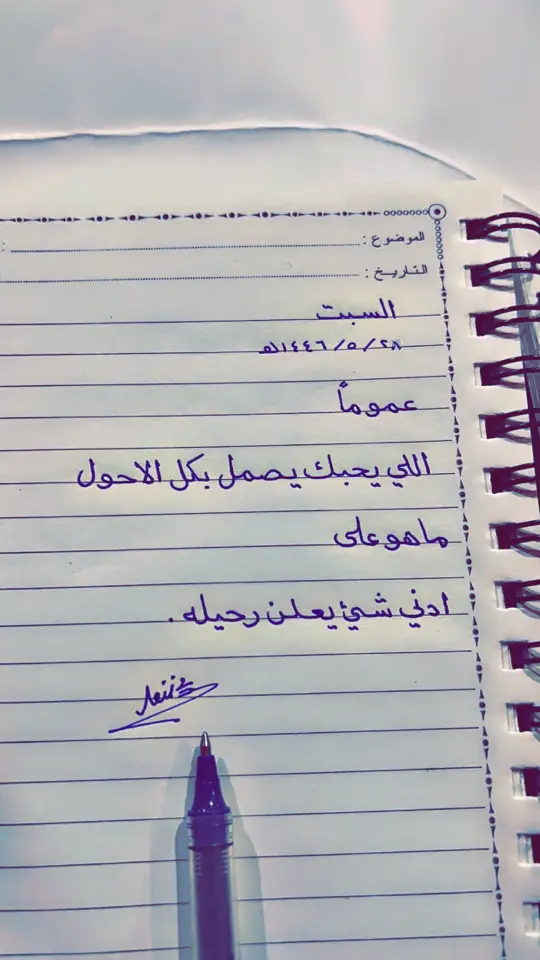 الموضوع :
التاريخ :
السبت
٢٨/٥/١٤٤٦هـ
عموماً
اللي يحبك يصمل بكل الاحول
ماهو على
ادنى شيئ يعلن رحيله .